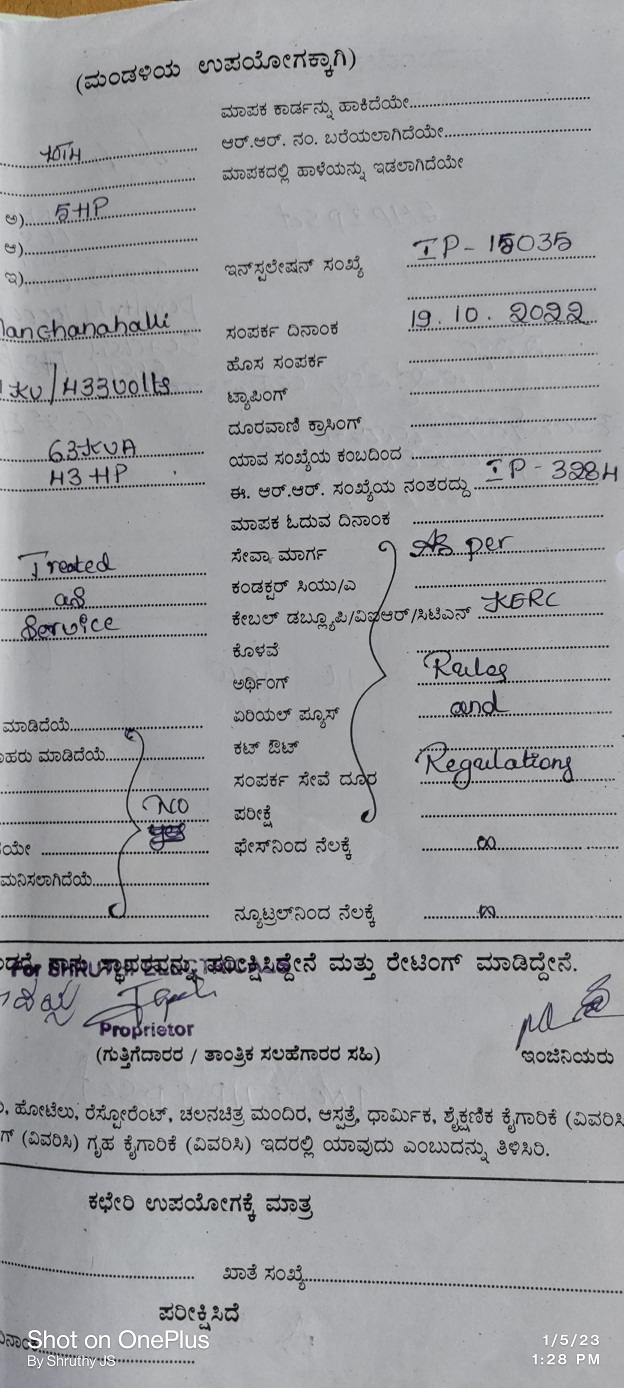 (ಮಂಡಳಿಯ ಉಪಯೋಗಕ್ಕಾಗಿ)
ಮಾಪಕ ಕಾರ್ಡನ್ನು ಹಾಕಿದೆಯೇ
ಆರ್.ಆರ್. ನಂ. ಬರೆಯಲಾಗಿದೆಯೇ
ಮಾಪಕದಲ್ಲಿ ಹಾಳೆಯನ್ನು ಇಡಲಾಗಿದೆಯೇ
ಅ) 5HP
ಆ)
ಇ)
ಇನ್‌ಸ್ಟಲೇಷನ್ ಸಂಖ್ಯೆ IP-15035
anchanahalli ಸಂಪರ್ಕ ದಿನಾಂಕ 19.10.2022
ಹೊಸ ಸಂಪರ್ಕ
KV/433volts ಟ್ಯಾಪಿಂಗ್
ದೂರವಾಣಿ ಕ್ರಾಸಿಂಗ್
63KVA ಯಾವ ಸಂಖ್ಯೆಯ ಕಂಬದಿಂದ
43 HP ಈ. ಆರ್.ಆರ್. ಸಂಖ್ಯೆಯ ನಂತರದ್ದು IP-3284
ಮಾಪಕ ಓದುವ ದಿನಾಂಕ
Treated ಸೇವಾ ಮಾರ್ಗ As per
as ಕಂಡಕ್ಟರ್ ಸಿಯು/ಎ
Service ಕೇಬಲ್ ಡಬ್ಲ್ಯೂಪಿ/ವಿಐಆರ್/ಸಿಟಿಎಸ್ KERC
ಕೊಳವೆ
ಅರ್ಥಿಂಗ್ Rules
ಮಾಡಿದೆಯೆ ಏರಿಯಲ್ ಪ್ಯೂಸ್ and
ಹರು ಮಾಡಿದೆಯೆ ಕಟ್ ಔಟ್
ಸಂಪರ್ಕ ಸೇವೆ ದೂರ Regulations
NO ಪರೀಕ್ಷೆ
ಯೇ ಫೇಸ್‌ನಿಂದ ನೆಲಕ್ಕೆ ∞
ಮನಿಸಲಾಗಿದೆಯೆ
ನ್ಯೂಟ್ರಲ್‌ನಿಂದ ನೆಲಕ್ಕೆ ∞
ಸ್ಥಾವರವನ್ನು ಪರೀಕ್ಷಿಸಿದ್ದೇನೆ ಮತ್ತು ರೇಟಿಂಗ್ ಮಾಡಿದ್ದೇನೆ.
For SHRUTHI
Proprietor
(ಗುತ್ತಿಗೆದಾರರ / ತಾಂತ್ರಿಕ ಸಲಹೆಗಾರರ ಸಹಿ) ಇಂಜಿನಿಯರು
ಹೋಟೆಲು, ರೆಸ್ಟೋರೆಂಟ್, ಚಲನಚಿತ್ರ ಮಂದಿರ, ಆಸ್ಪತ್ರೆ, ಧಾರ್ಮಿಕ, ಶೈಕ್ಷಣಿಕ ಕೈಗಾರಿಕೆ (ವಿವರಿಸಿ
ಗ್ (ವಿವರಿಸಿ) ಗೃಹ ಕೈಗಾರಿಕೆ (ವಿವರಿಸಿ) ಇದರಲ್ಲಿ ಯಾವುದು ಎಂಬುದನ್ನು ತಿಳಿಸಿರಿ.
ಕಛೇರಿ ಉಪಯೋಗಕ್ಕೆ ಮಾತ್ರ
ಖಾತೆ ಸಂಖ್ಯೆ
ಪರೀಕ್ಷಿಸಿದೆ
Shot on OnePlus
By Shruthy JS
1/5/23
1:28 PM